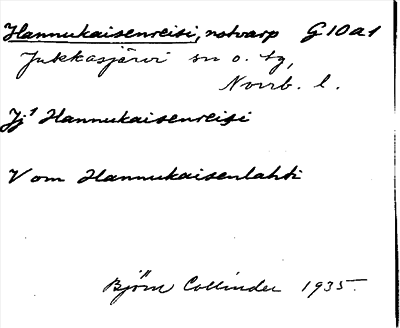 Hannukaisenreisi, notvarp G10a1
Jukkasjärvi sn o. tg,
Norrb. l.
Jj¹ Hannukaisenreisi
V om Hannukaisenlahti
Björn Collinder 1935.